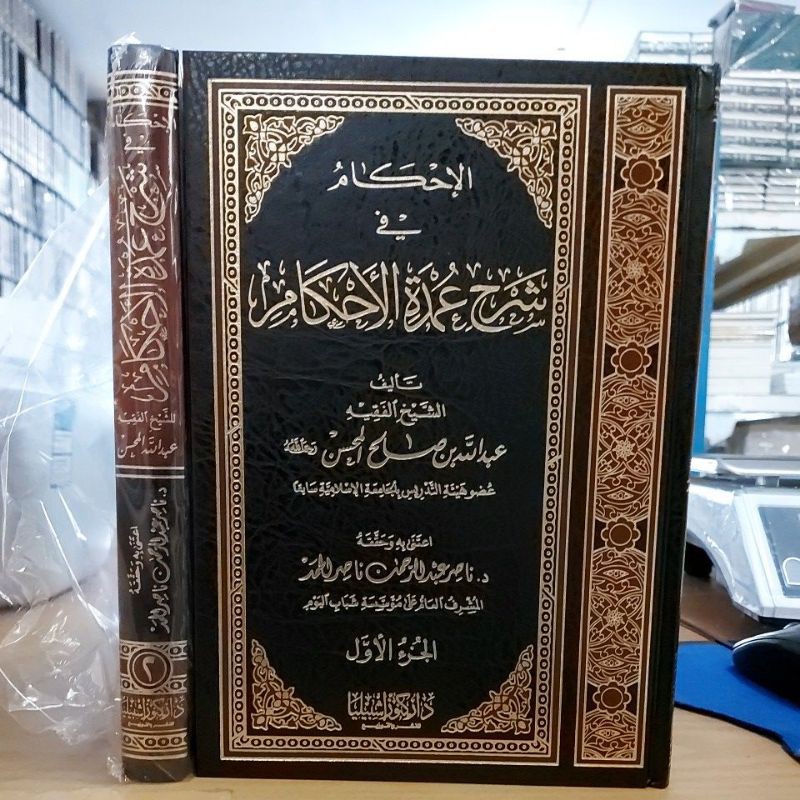 الإحكام
في
شرح عمدة الأحكام
للشيخ الفقيه
عبدالله المحسن
اعتنى به وحققه
د. ناصر عبدالرحمن ناصر الحمد
٢
دار كنوز إشبيليا
للنشر والتوزيع
الإِحْكَامُ
في
شَرْحِ عُمْدَةِ الأَحْكَامِ
تأليف
الشيخ الفقيه
عبدالله بن صالح المحسن رحمه الله
عضو هيئة التدريس بالجامعة الإسلامية سابقا
اعتنى به وحققه
د. ناصر عبدالرحمن ناصر الحمد
المشرف العام على مؤسسة شباب اليوم
الجزء الأول
دار كنوز إشبيليا
للنشر والتوزيع